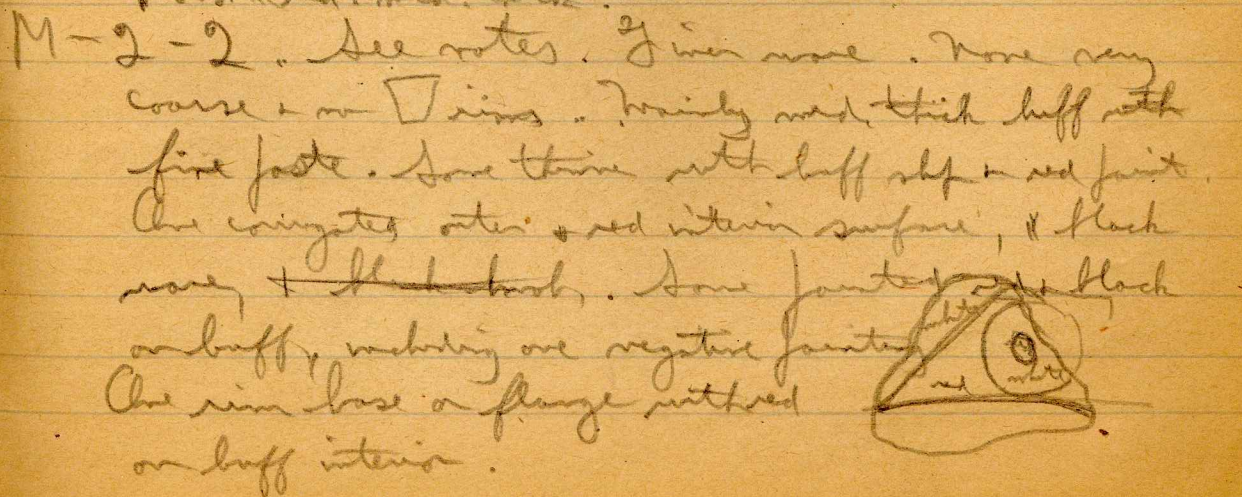 M-2-2. See notes. Finer ware. None very
coarse + no rims. Mainly med. thick buff with
fine paste. Some thinner with buff slip or red paint.
One corrugated outer & red interior surface, & black
ware,. Some painted red & black
on buff, including one negative painted
white
red
white
One rim base or flange with red
on buff interior.